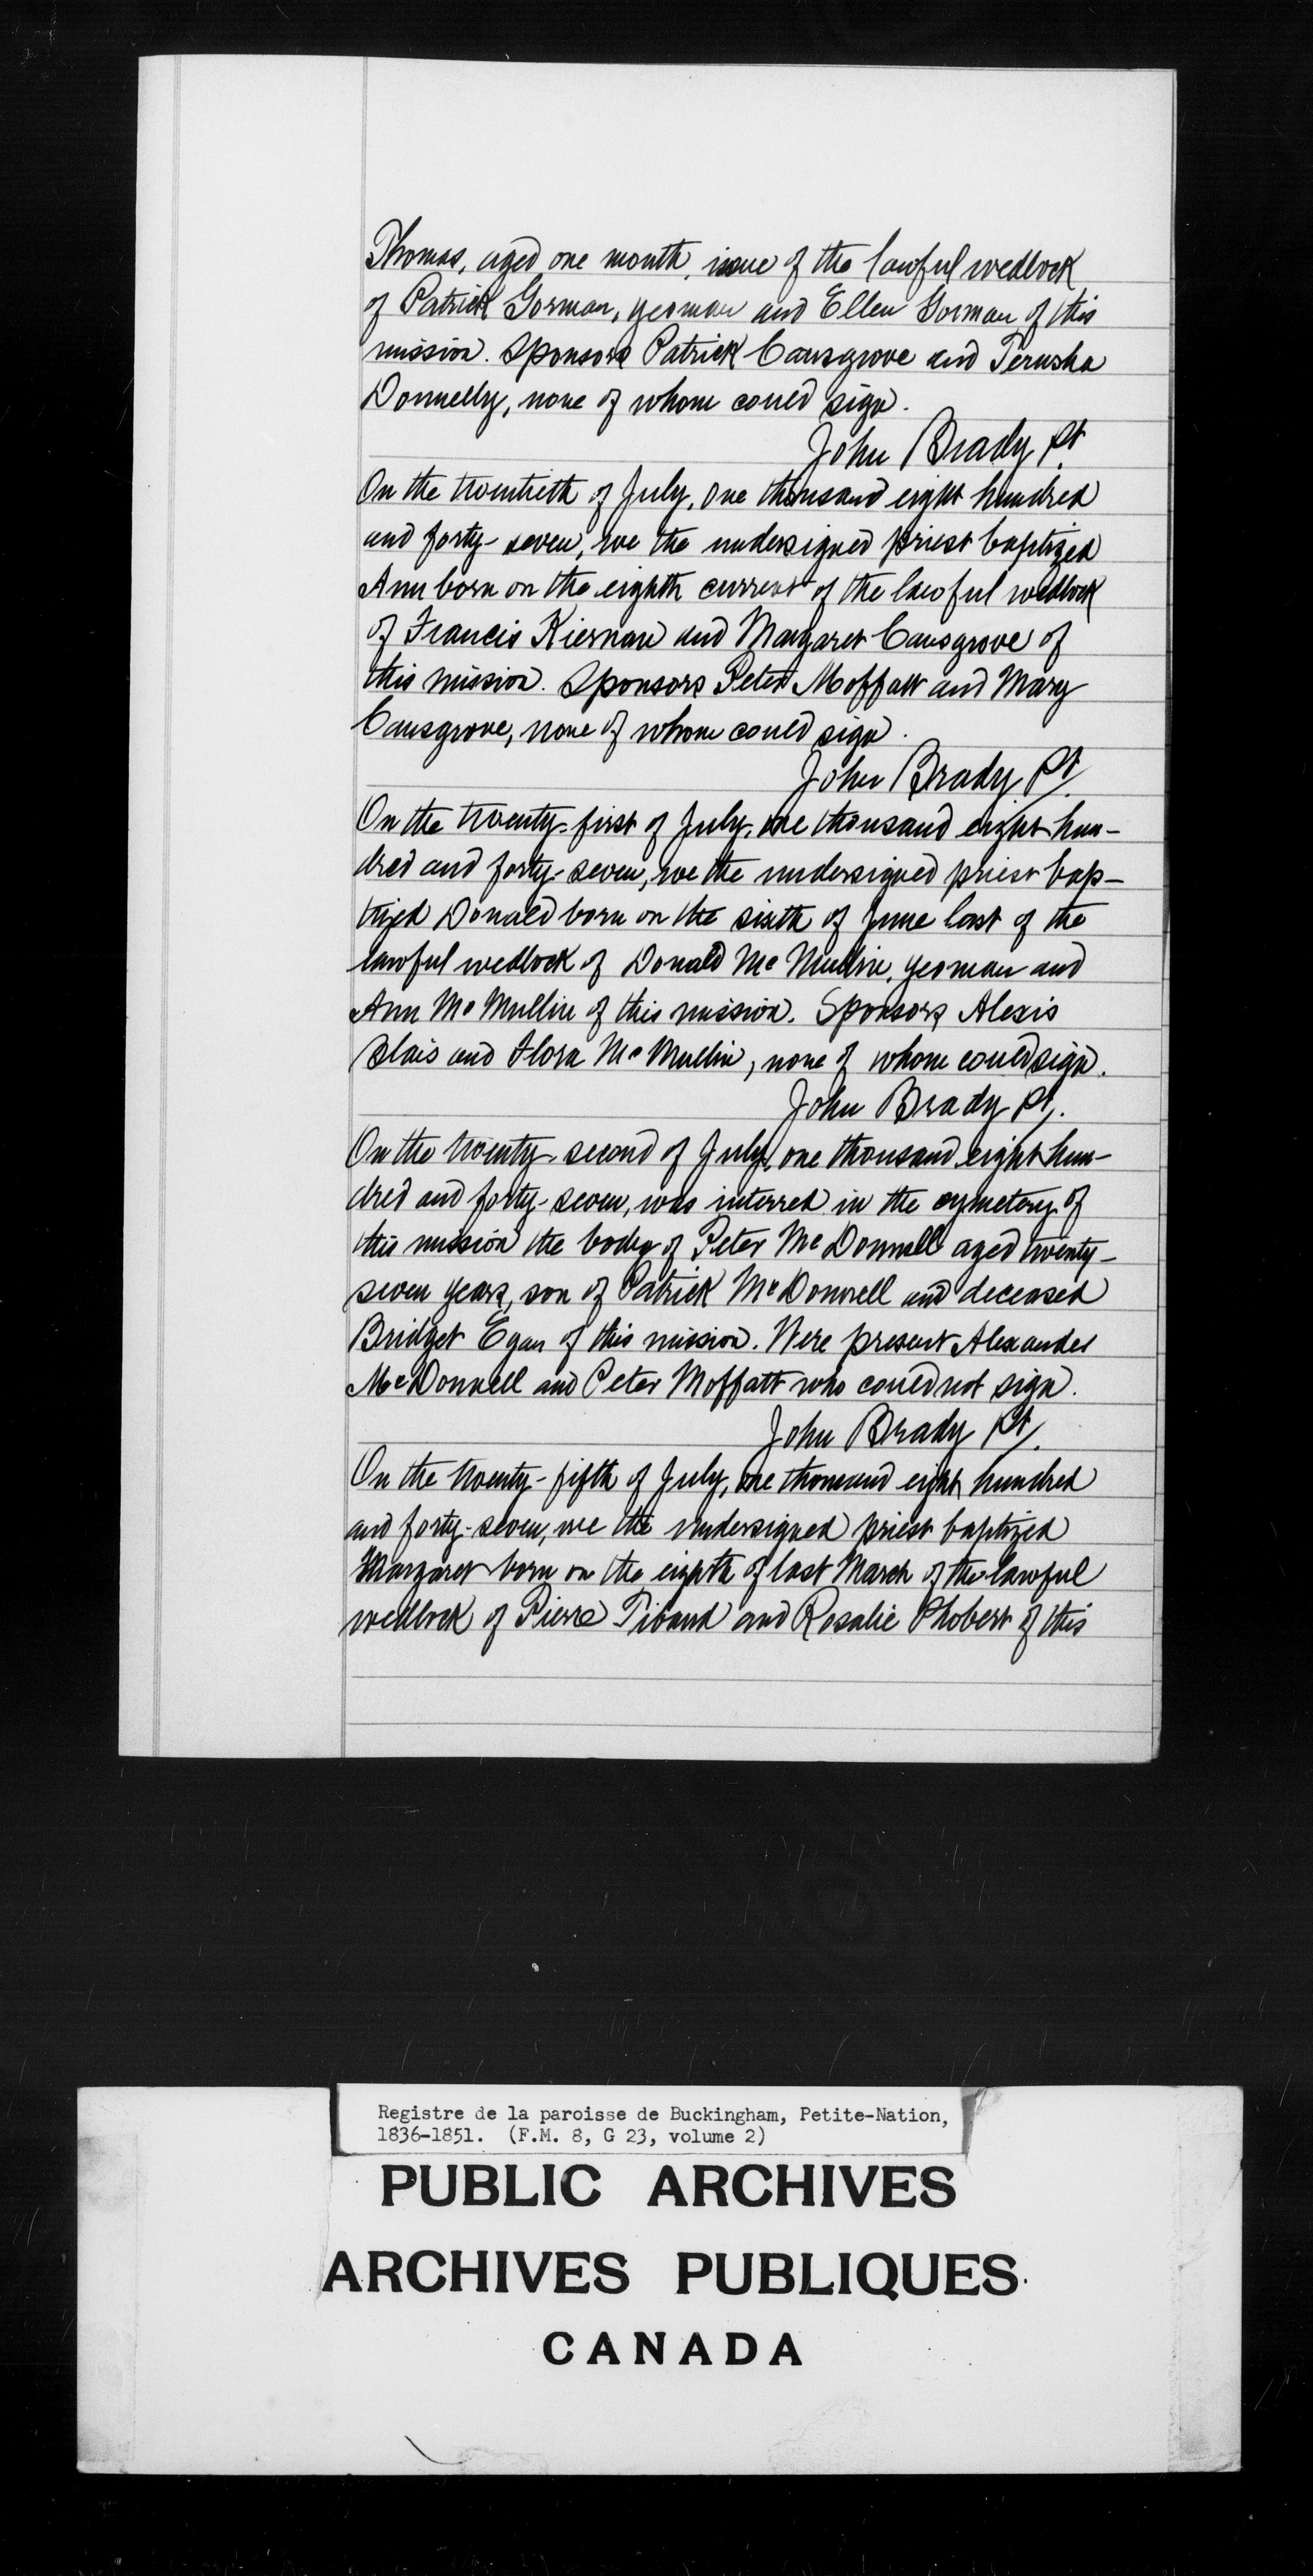 Thomas, aged one month, issue of the lawful wedlock
of Patrick Gorman, yeoman and Ellen Gorman of this
mission. Sponsors Patrick Causgrove and Jerusha
Donnelly, none of whom could sign.
John Brady Pt.
On the twentieth of July, one thousand eight hundred
and forty-seven, we the undersigned priest baptized
Ann born on the eighth current of the lawful wedlock
of Francis Kiernan and Margaret Causgrove of
this mission. Sponsors Peter Moffatt and Mary
Causgrove, none of whom could sign.
John Brady Pt.
On the twenty-first of July, one thousand eight hun-
dred and forty-seven, we the undersigned priest bap-
tized Donald born on the sixth of June last of the
lawful wedlock of Donald McMullin, yeoman and
Ann McMullin of this mission. Sponsors Alexis
Blais and Flora McMullin, none of whom could sign.
John Brady Pt.
On the twenty-second of July, one thousand eight hun-
dred and forty-seven, was interred in the cymetery of
this mission the body of Peter McDonnell aged twenty-
seven years, son of Patrick McDonnell and deceased
Bridget Egan of this mission. Were present Alexander
McDonnell and Peter Moffatt who could not sign.
John Brady Pt.
On the twenty-fifth of July, one thousand eight hundred
and forty-seven, we the undersigned priest baptized
Margaret born on the eighth of last March of the lawful
wedlock of Pierre Tibaud and Rosalie Phobert of this
Registre de la paroisse de Buckingham, Petite-Nation,
1836-1851. (F.M. 8, G 23, volume 2)
PUBLIC ARCHIVES
ARCHIVES PUBLIQUES
CANADA